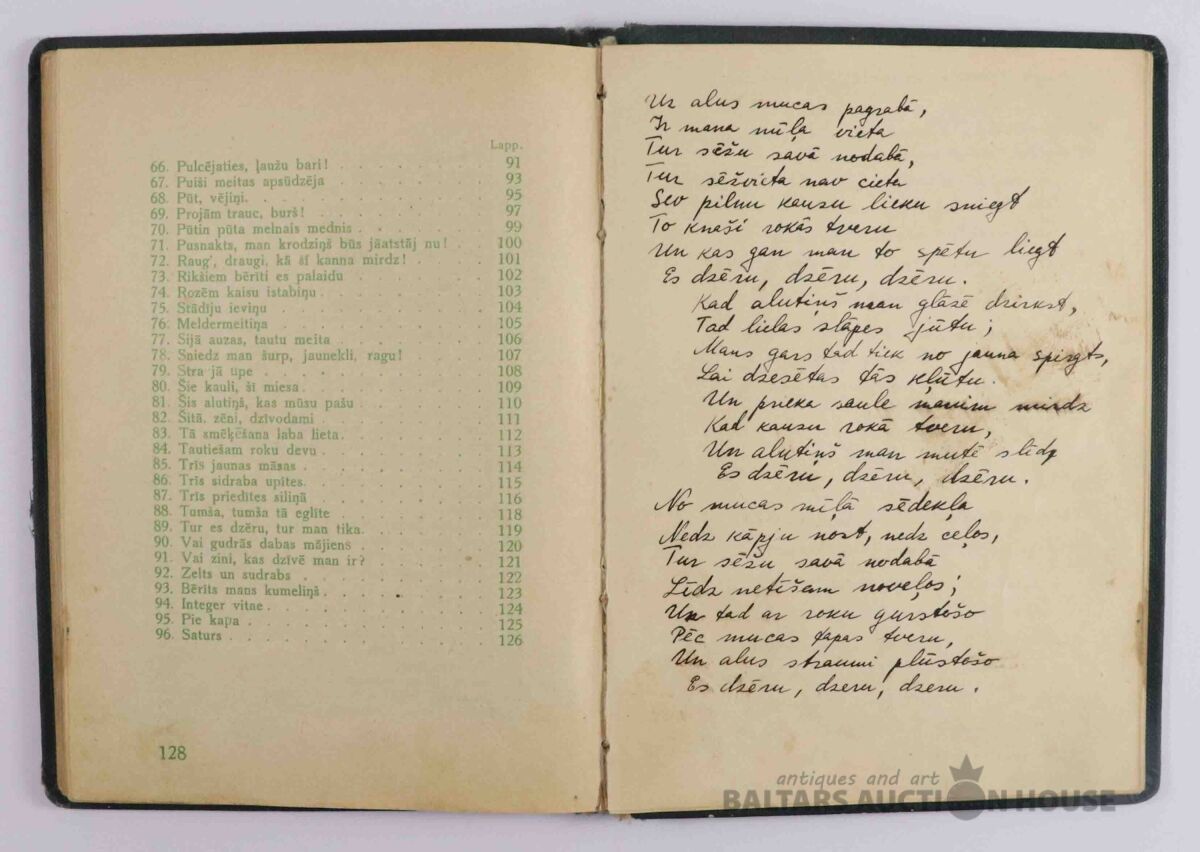 Lapp.
66. Pulcējaties, ļaužu bari! 91
67. Puiši meitas apsūdzēja 93
68. Pūt, vējiņi. 95
69. Projām trauc, burš! 97
70. Pūtin pūta melnais mednis 99
71. Pusnakts, man krodziņš būs jāatstāj nu! 100
72. Raug', draugi, kā šī kanna mirdz! 101
73. Rikšiem bērīti es palaidu 102
74. Rozēm kaisu istabiņu 103
75. Stādīju ieviņu 104
76. Meldermeitiņa 105
77. Sijā auzas, tautu meita 106
78. Sniedz man šurp, jaunekli, ragu! 107
79. Stra jā upe 108
80. Šie kauli, šī miesa 109
81. Šis alutiņš, kas mūsu pašu 110
82. Šitā, zēni, dzīvodami 111
83. Tā smēķēšana laba lieta 112
84. Tautiešam roku devu 113
85. Trīs jaunas māsas 114
86. Trīs sidraba upītes. 115
87. Trīs priedītes siliņā 116
88. Tumša, tumša tā eglīte 118
89. Tur es dzēru, tur man tika. 119
90. Vai gudrās dabas mājiens 120
91. Vai zini, kas dzīvē man ir? 121
92. Zelts un sudrabs 122
93. Bērīts mans kumeliņš 123
94. Integer vitae 124
95. Pie kapa 125
96. Saturs 126
128
Uz alus mucas pagrabā,
Ir mana mīļa vieta
Tur sēšu savā nodabā,
Tur sēšvieta nav cieta
Sev pilnu kausu lieku sniegt
To knaši rokās tveru
Un kas gan man to spētu liegt
Es dzēru, dzēru, dzēru.
Kad alutiņš man glāzē dzirkst,
Tad lielas slāpes jūtu;
Mans gars tad tiek no jauna spirgts,
Lai dzesētas tās kļūtu.
Un prieka saule manim mirdz
Kad kausu rokā tveru,
Un alutiņš man mutē slīdz
Es dzēru, dzēru, dzēru.
No mucas mīļā sēdekļa
Nedz kāpju nost, nedz ceļos,
Tur sēšu savā nodabā
Līdz netīšam noveļos;
Un tad ar roku gurstošo
Pēc mucas tapas tveru,
Un alus straumi plūstošo
Es dzēru, dzeru, dzeru.
antiques and art
BALTARS AUCTION HOUSE